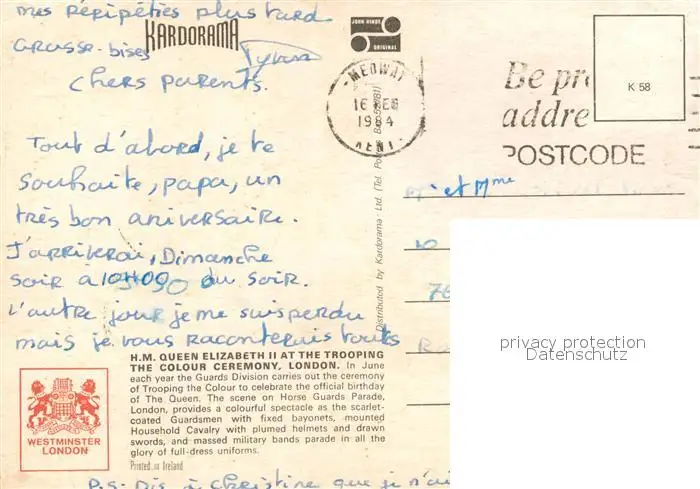 mes péripéties plus tard
Grosse bises
KARDORAMA
chers parents.
Tout d'abord, je te
souhaite, papa, un
très bon aniversaire.
J'arriverai, Dimanche
soir à 10H00 du soir.
L'autre jour je me suis perdu
mais je vous raconterais touts
H.M. QUEEN ELIZABETH II AT THE TROOPING
THE COLOUR CEREMONY, LONDON. In June
each year the Guards Division carries out the ceremony
of Trooping the Colour to celebrate the official birthday
of The Queen. The scene on Horse Guards Parade,
London, provides a colourful spectacle as the scarlet-
coated Guardsmen with fixed bayonets, mounted
Household Cavalry with plumed helmets and drawn
swords, and massed military bands parade in all the
glory of full-dress uniforms.
Printed in Ireland
WESTMINSTER
LONDON
P.S: Dis à Christine que je n'ai
Distributed by Kardorama Ltd. (Tel. Po
MEDWAY
16 FEB
1984
KENT
Be pr
addre
POSTCODE
K 58
et Mme
10
76
privacy protection
Datenschutz